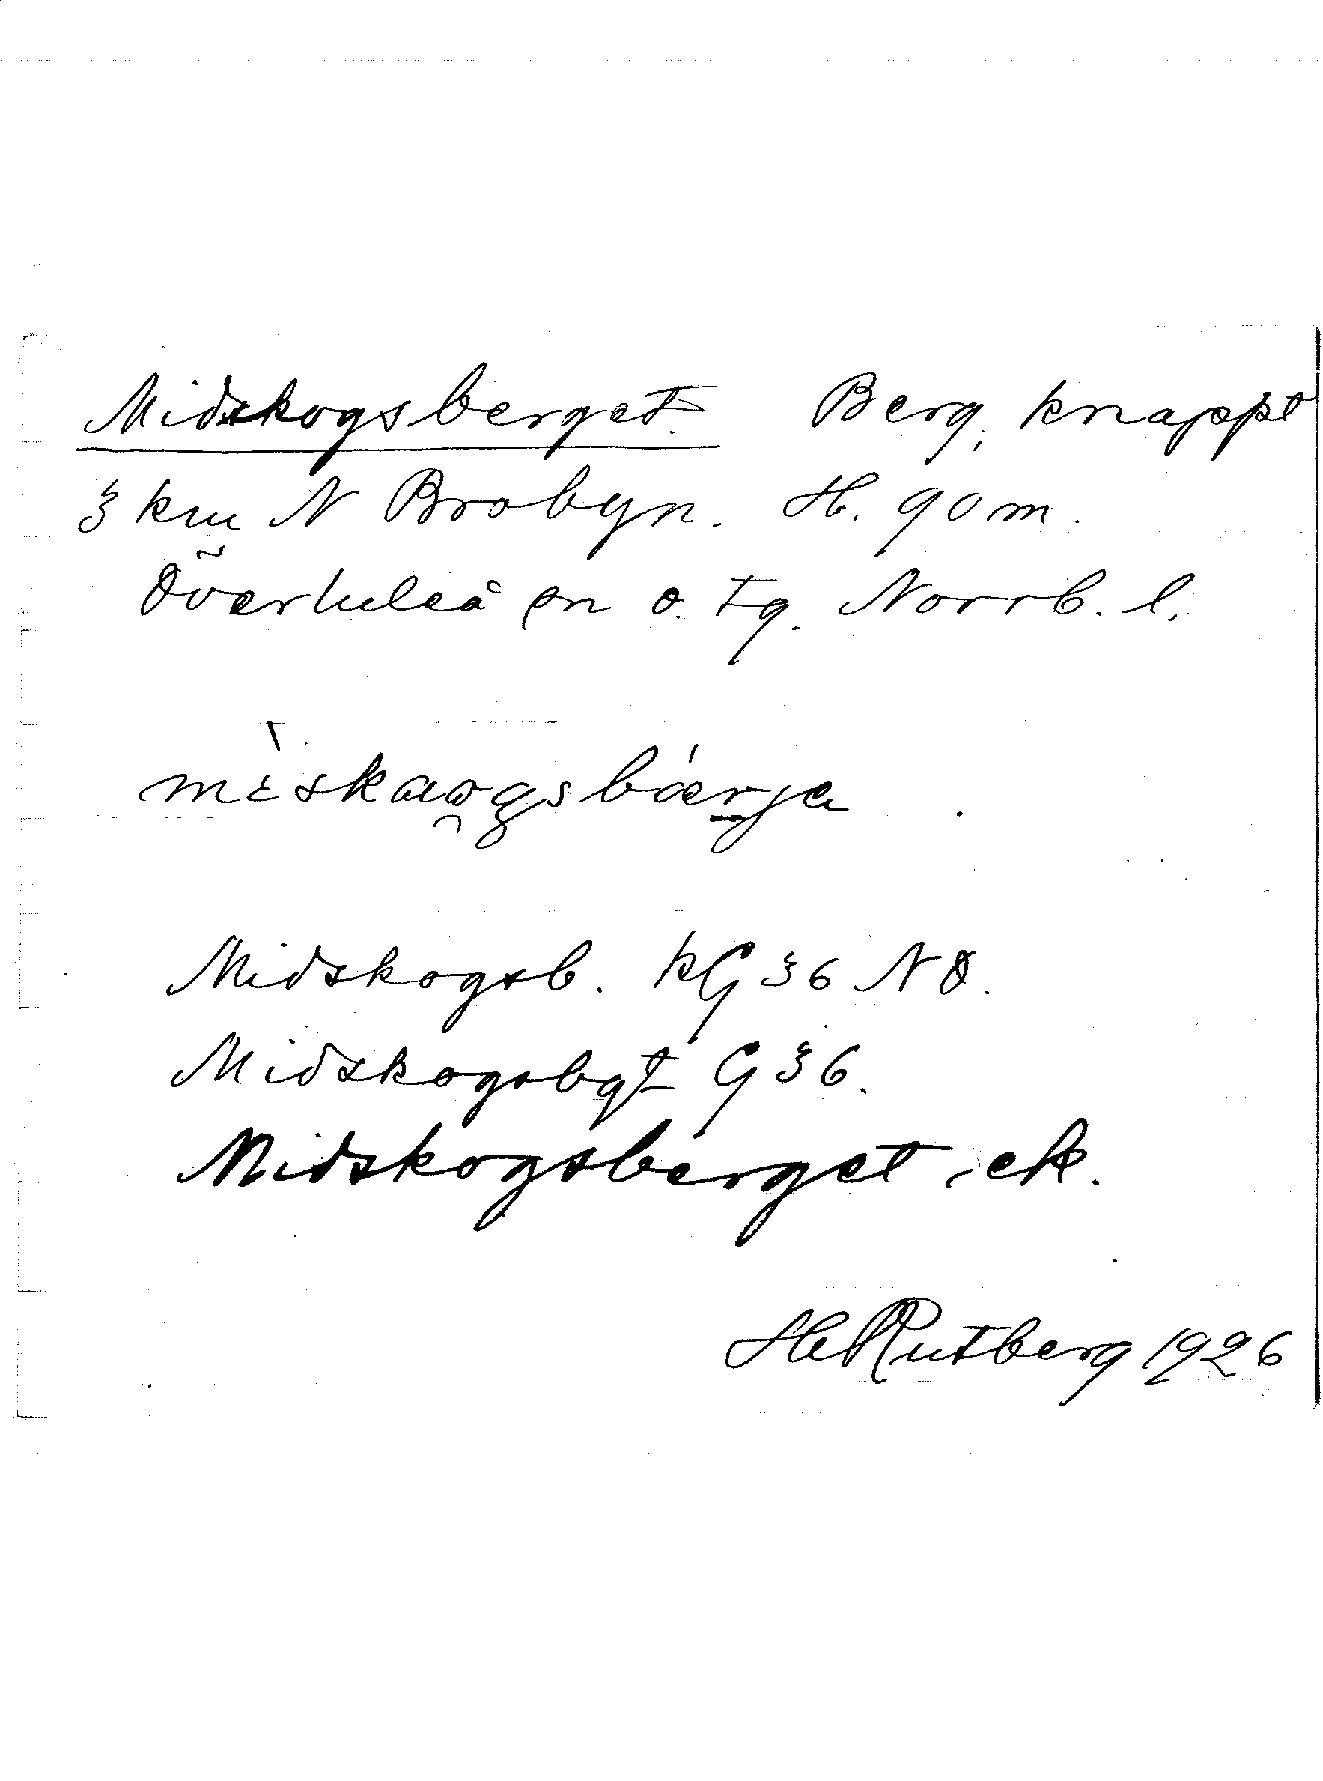 Midskogsberget. Berg, knappt
3 km N Brobyn. H. 90 m.
Överluleå sn o. tg. Norrb. l.
mìskaogsbærja
Midskogsb. kG 36 NO.
Midskogsbgt G 36.
Midskogsberget, ek.
H Rutberg 1926